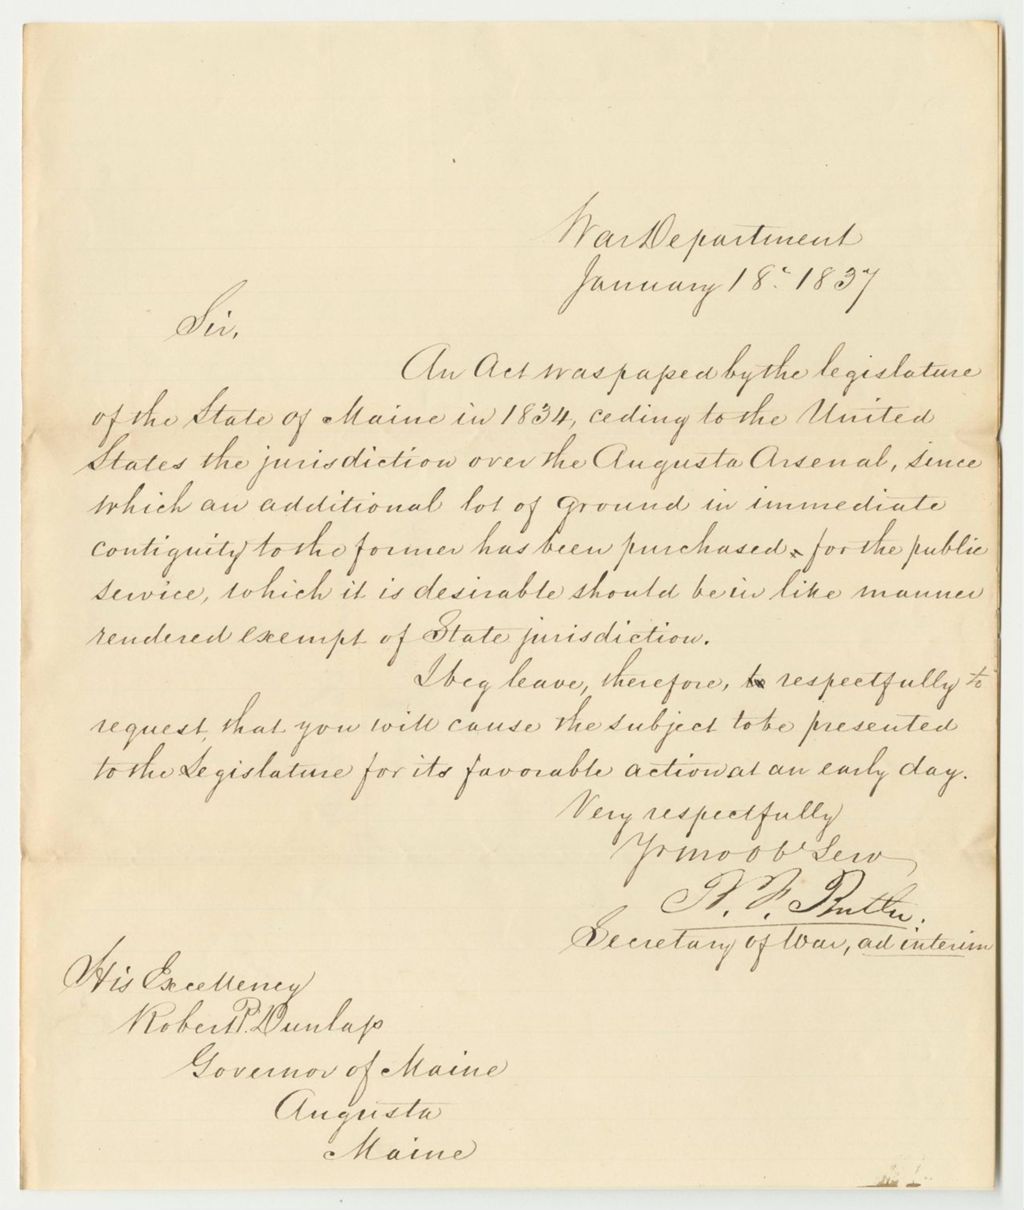 War Department
January 18th 1837
Sir,
An Act was passed by the legislature
of the State of Maine in 1834, ceding to the United
States the jurisdiction over the Augusta Arsenal, since
which an additional lot of ground in immediate
contiguity to the former has been purchased, for the public
service, which it is desirable should be in like manner
rendered exempt of State jurisdiction.
I beg leave, therefore, to respectfully to
request, that you will cause the subject to be presented
to the Legislature for its favorable action at an early day.
Very respectfully
Yr mo ob Serv
B. F. Butler.
Secretary of War, ad interim
His Excellency
Robert P. Dunlap
Governor of Maine
Augusta
Maine